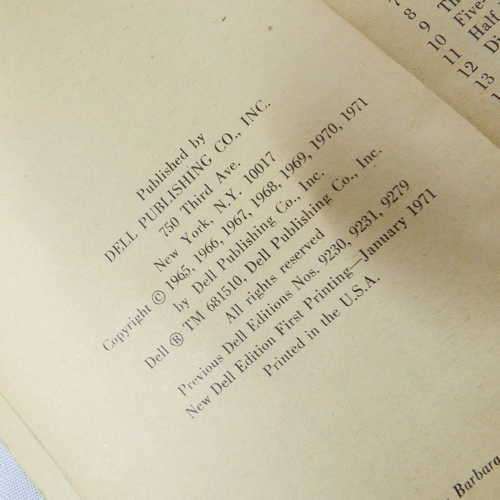 Published by
DELL PUBLISHING CO., INC.
750 Third Ave.
New York, N.Y. 10017
Copyright © 1965, 1966, 1967, 1968, 1969, 1970, 1971
by Dell Publishing Co., Inc.
Dell ® TM 681510, Dell Publishing Co., Inc.
All rights reserved
Previous Dell Editions Nos. 9230, 9231, 9279
New Dell Edition First Printing—January 1971
Printed in the U.S.A.
8
9
10 Five-
11 Half
12
13
Barbara